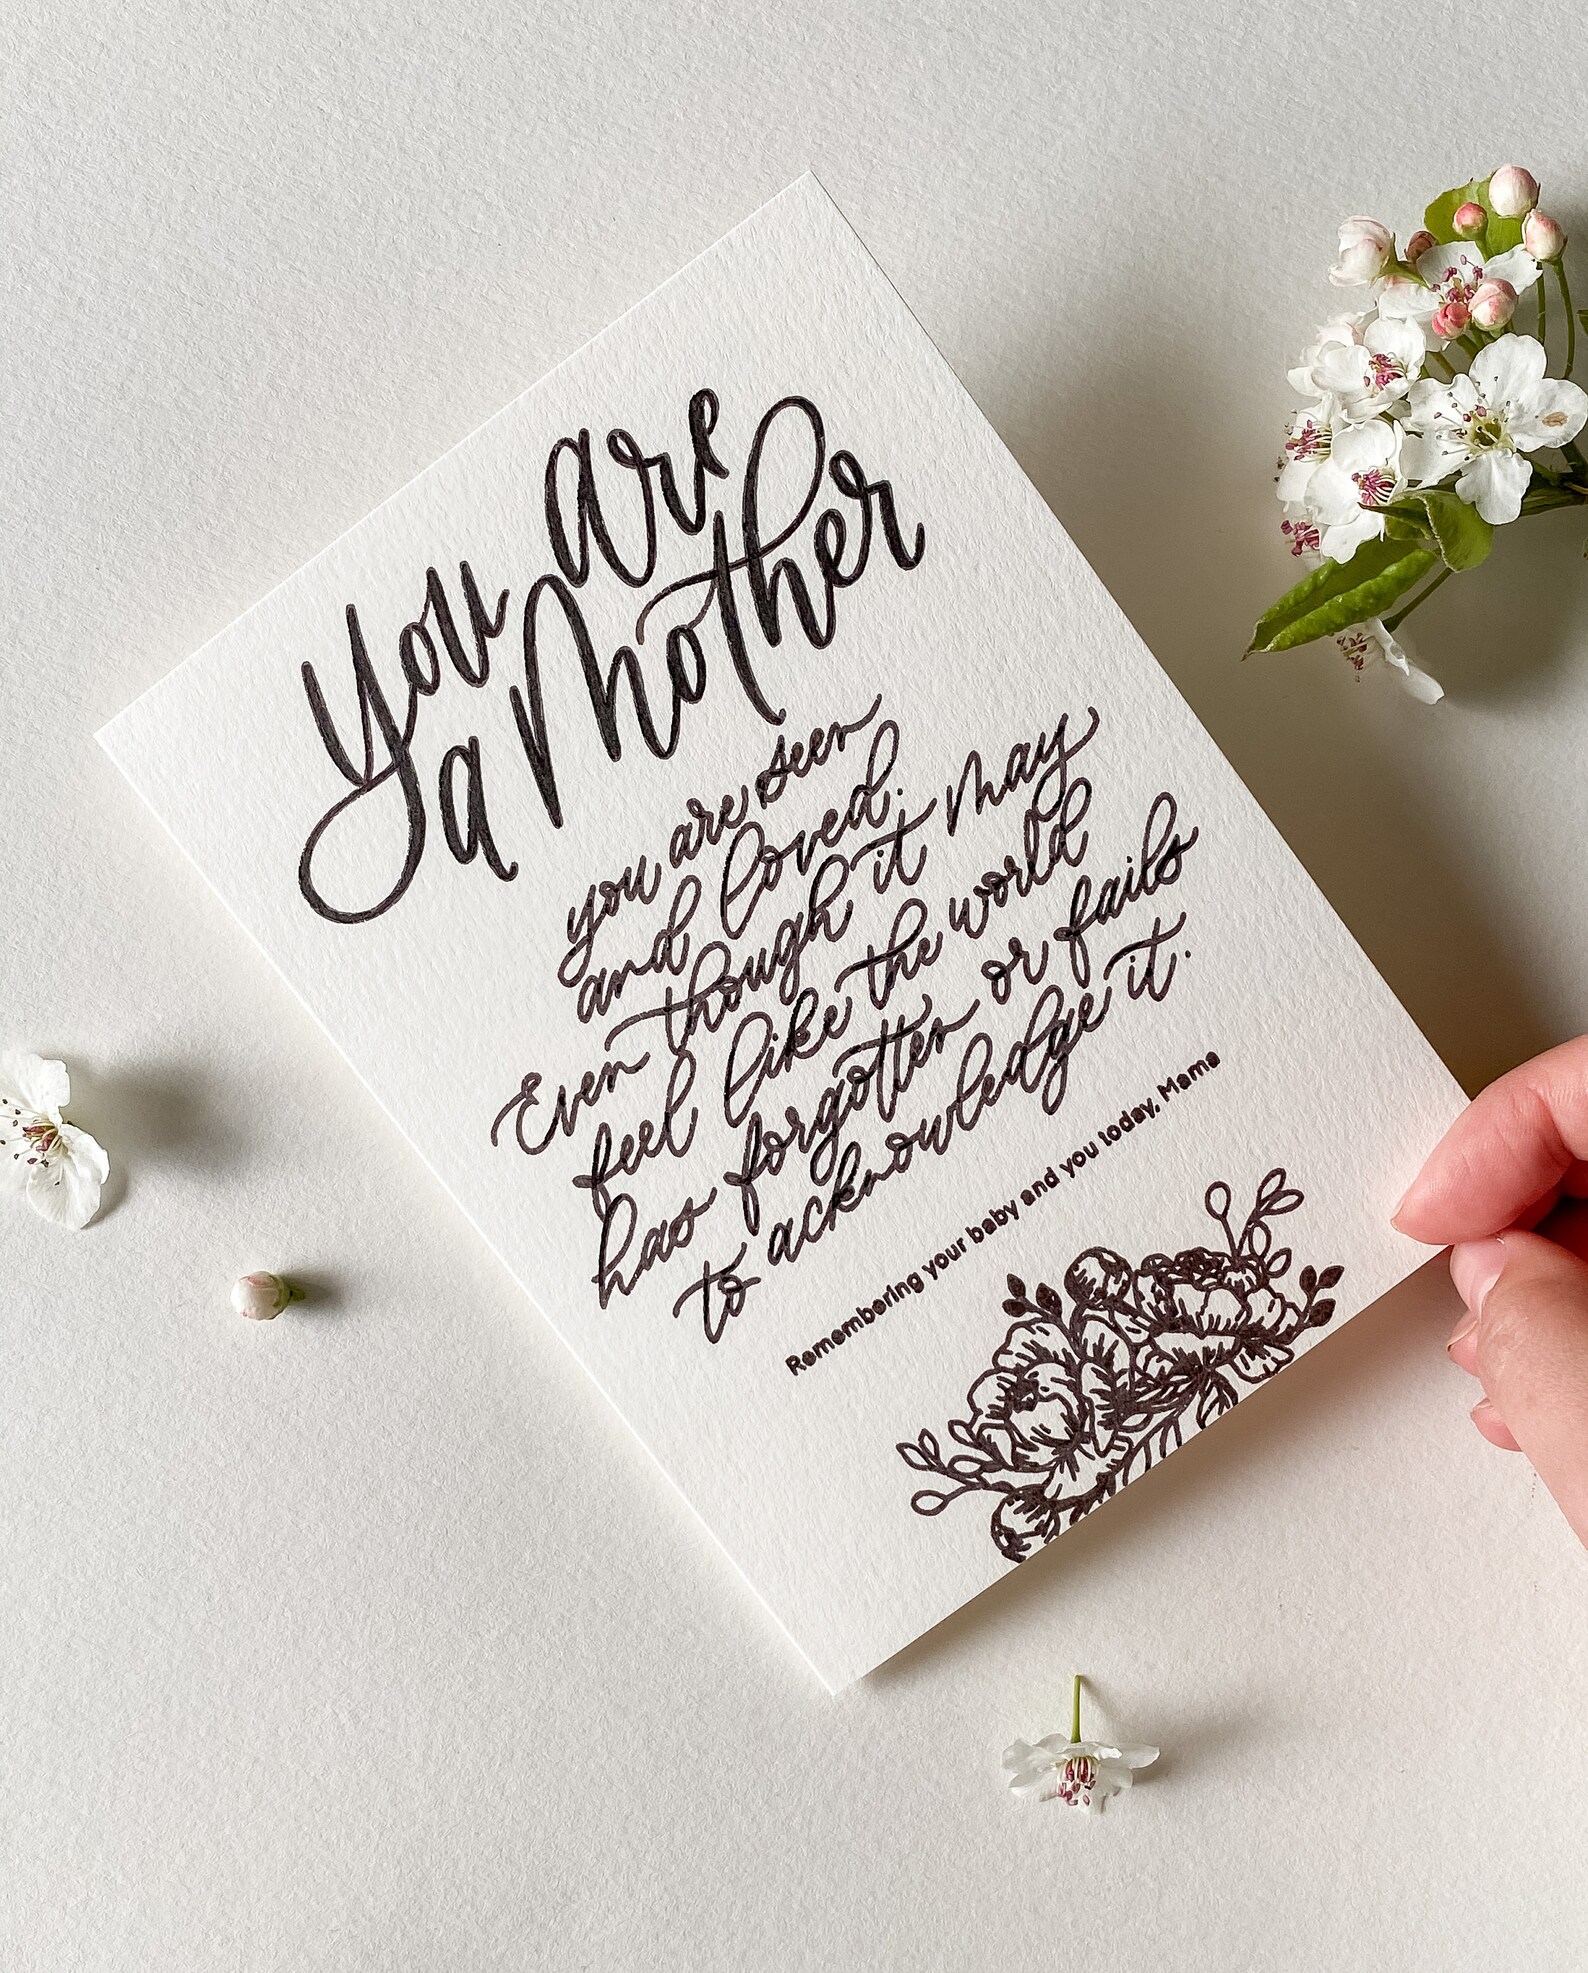 You are
a Mother
you are seen
and loved.
Even though it may
feel like the world
has forgotten or fails
to acknowledge it.
Remembering your baby and you today, Mama